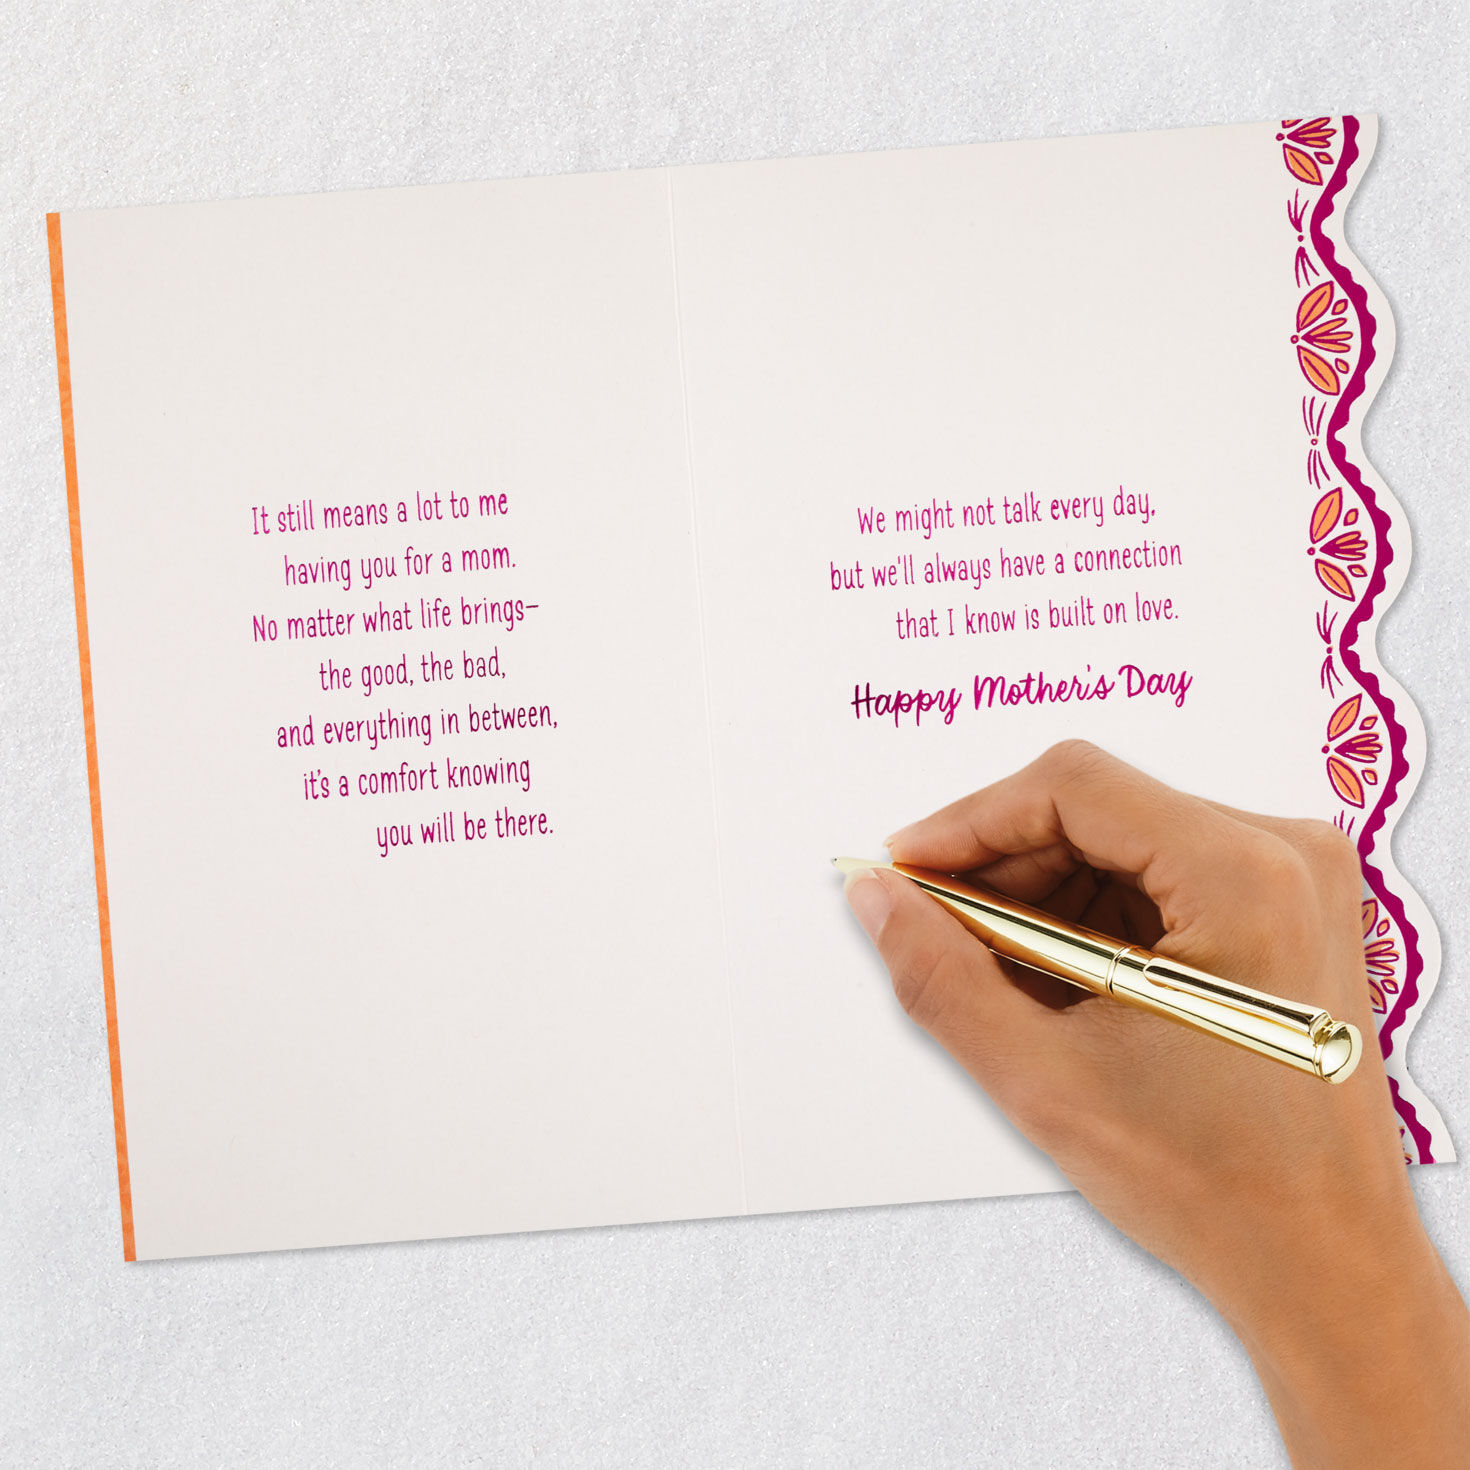 It still means a lot to me
having you for a mom.
No matter what life brings—
the good, the bad,
and everything in between,
it's a comfort knowing
you will be there.
We might not talk every day,
but we'll always have a connection
that I know is built on love.
Happy Mother's Day